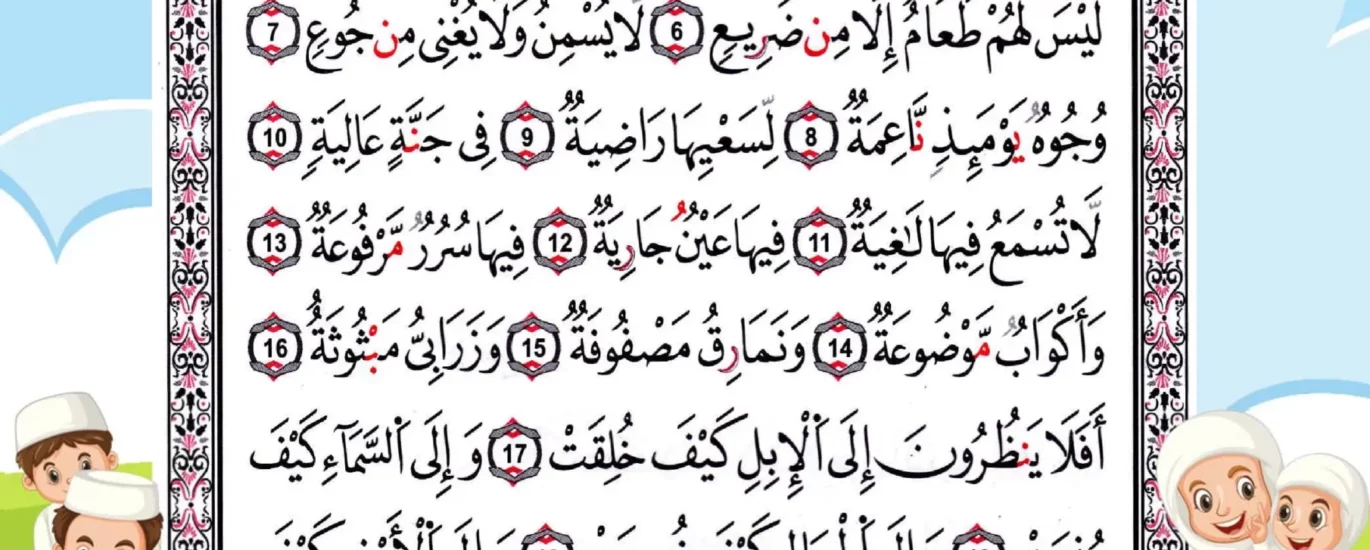 لَّيْسَ لَهُمْ طَعَامٌ إِلَّا مِن ضَرِيعٍ 6 لَا يُسْمِنُ وَلَا يُغْنِى مِن جُوعٍ 7
وُجُوهٌ يَوْمَئِذٍ نَّاعِمَةٌ 8 لِّسَعْيِهَا رَاضِيَةٌ 9 فِى جَنَّةٍ عَالِيَةٍ 10
لَّا تُسْمَعُ فِيهَا لَٰغِيَةٌ 11 فِيهَا عَيْنٌ جَارِيَةٌ 12 فِيهَا سُرُرٌ مَّرْفُوعَةٌ 13
وَأَكْوَابٌ مَّوْضُوعَةٌ 14 وَنَمَارِقُ مَصْفُوفَةٌ 15 وَزَرَابِىُّ مَبْثُوثَةٌ 16
أَفَلَا يَنظُرُونَ إِلَى ٱلْإِبِلِ كَيْفَ خُلِقَتْ 17 وَإِلَى ٱلسَّمَآءِ كَيْفَ